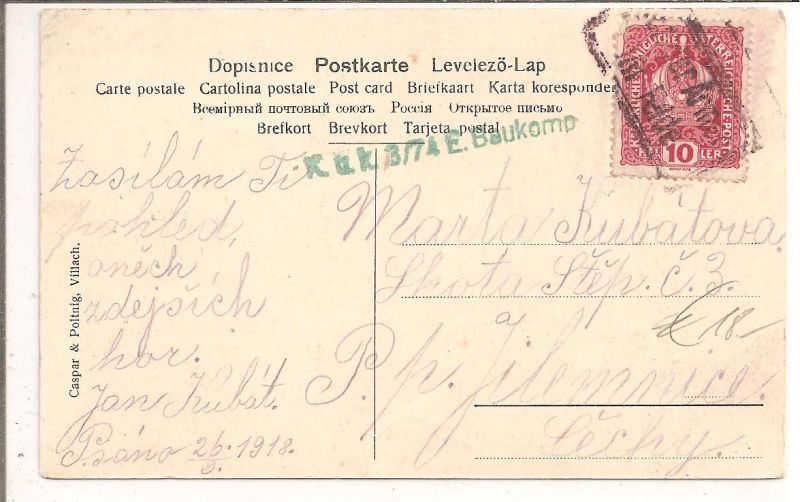 Dopisnice Postkarte Levelező-Lap
Carte postale Cartolina postale Post card Briefkaart Karta koresponden
Всемірный почтовый союзъ Россія Открытое письмо
Brefkort Brevkort Tarjeta postal
K. u. k. 3/74 E. Baukomp
10
Zasílám Ti
pohled,
oněch
zdejších
hor.
Jan Kubát.
Psáno 26/5. 1918.
Marta Kubátova
Lhota Štěp. č. 3.
P. p. Jilemnice.
Čechy.
€ 18-
Caspar & Poltnig, Villach.